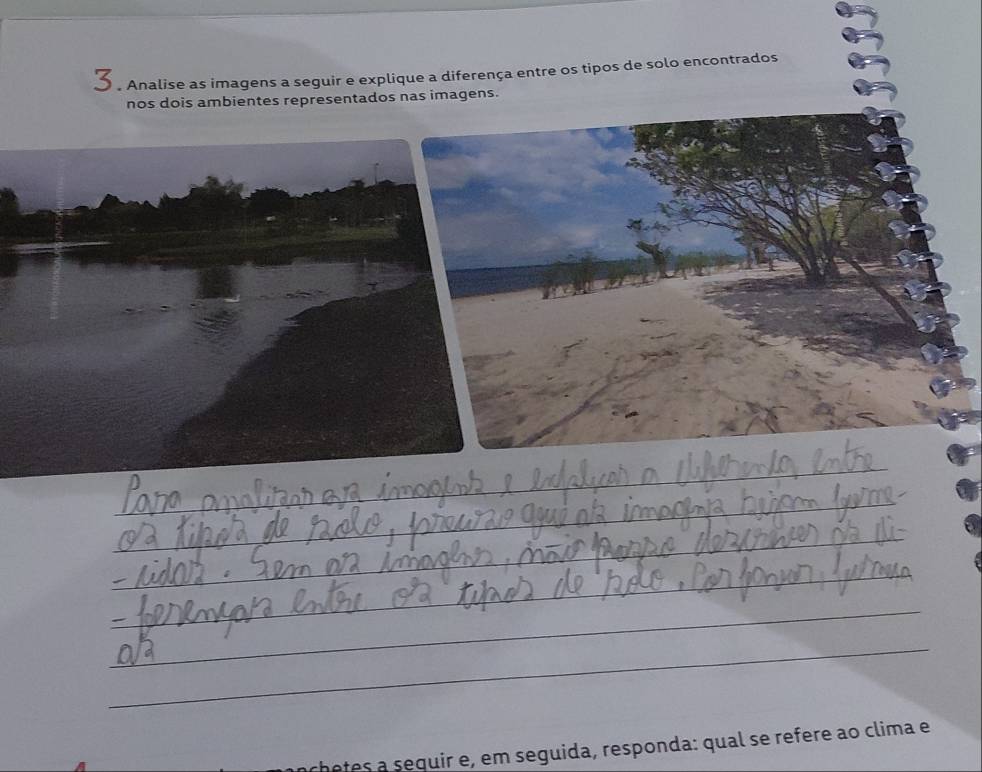 3. Analise as imagens a seguir e explique a diferença entre os tipos de solo encontrados
nos dois ambientes representados nas imagens.
Para analizar as imagens e explicar a diferença entre
os tipos de solo, preciso que as imagens sejam forne-
-cidas. Sem as imagens, não posso descrever as di-
-ferenças entre os tipos de solo. Por favor, forneça
as
manchetes a seguir e, em seguida, responda: qual se refere ao clima e